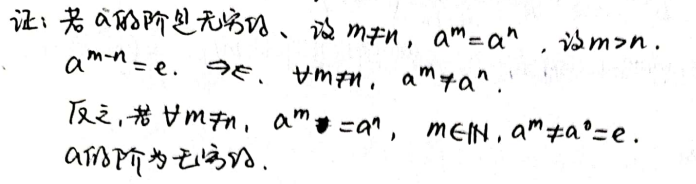 证: 若a的阶是无穷的、设 m≠n, aᵐ=aⁿ, 设m>n.
aᵐ⁻ⁿ=e. ⇒∈. ∀m≠n, aᵐ≠aⁿ.
反之,若∀m≠n, aᵐ =aⁿ, m∈ℕ, aᵐ≠a⁰=e.
a的阶为无穷的.